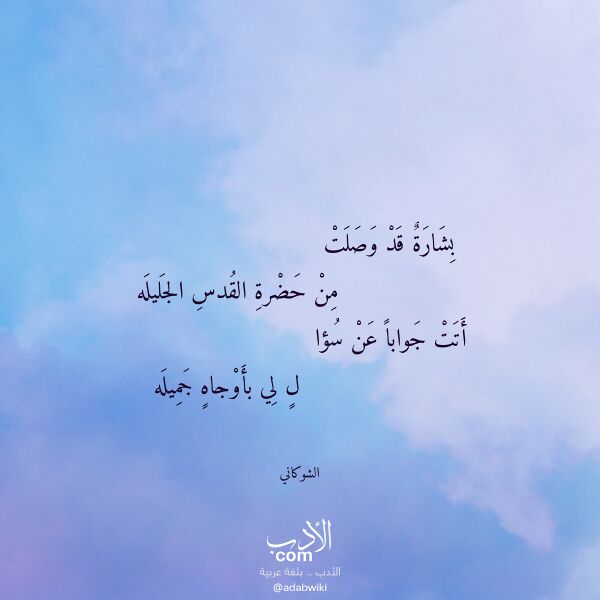 بِشَارَةٌ قَدْ وَصَلَتْ
مِنْ حَضْرةِ القُدسِ الجَليلَه
أَتَتْ جَواباً عَنْ سُؤا
لٍ لِي بأَوْجاهٍ جَمِيلَه
الشوكاني
الأدب
com
الأدب .. بلغة عربية
@adabwiki